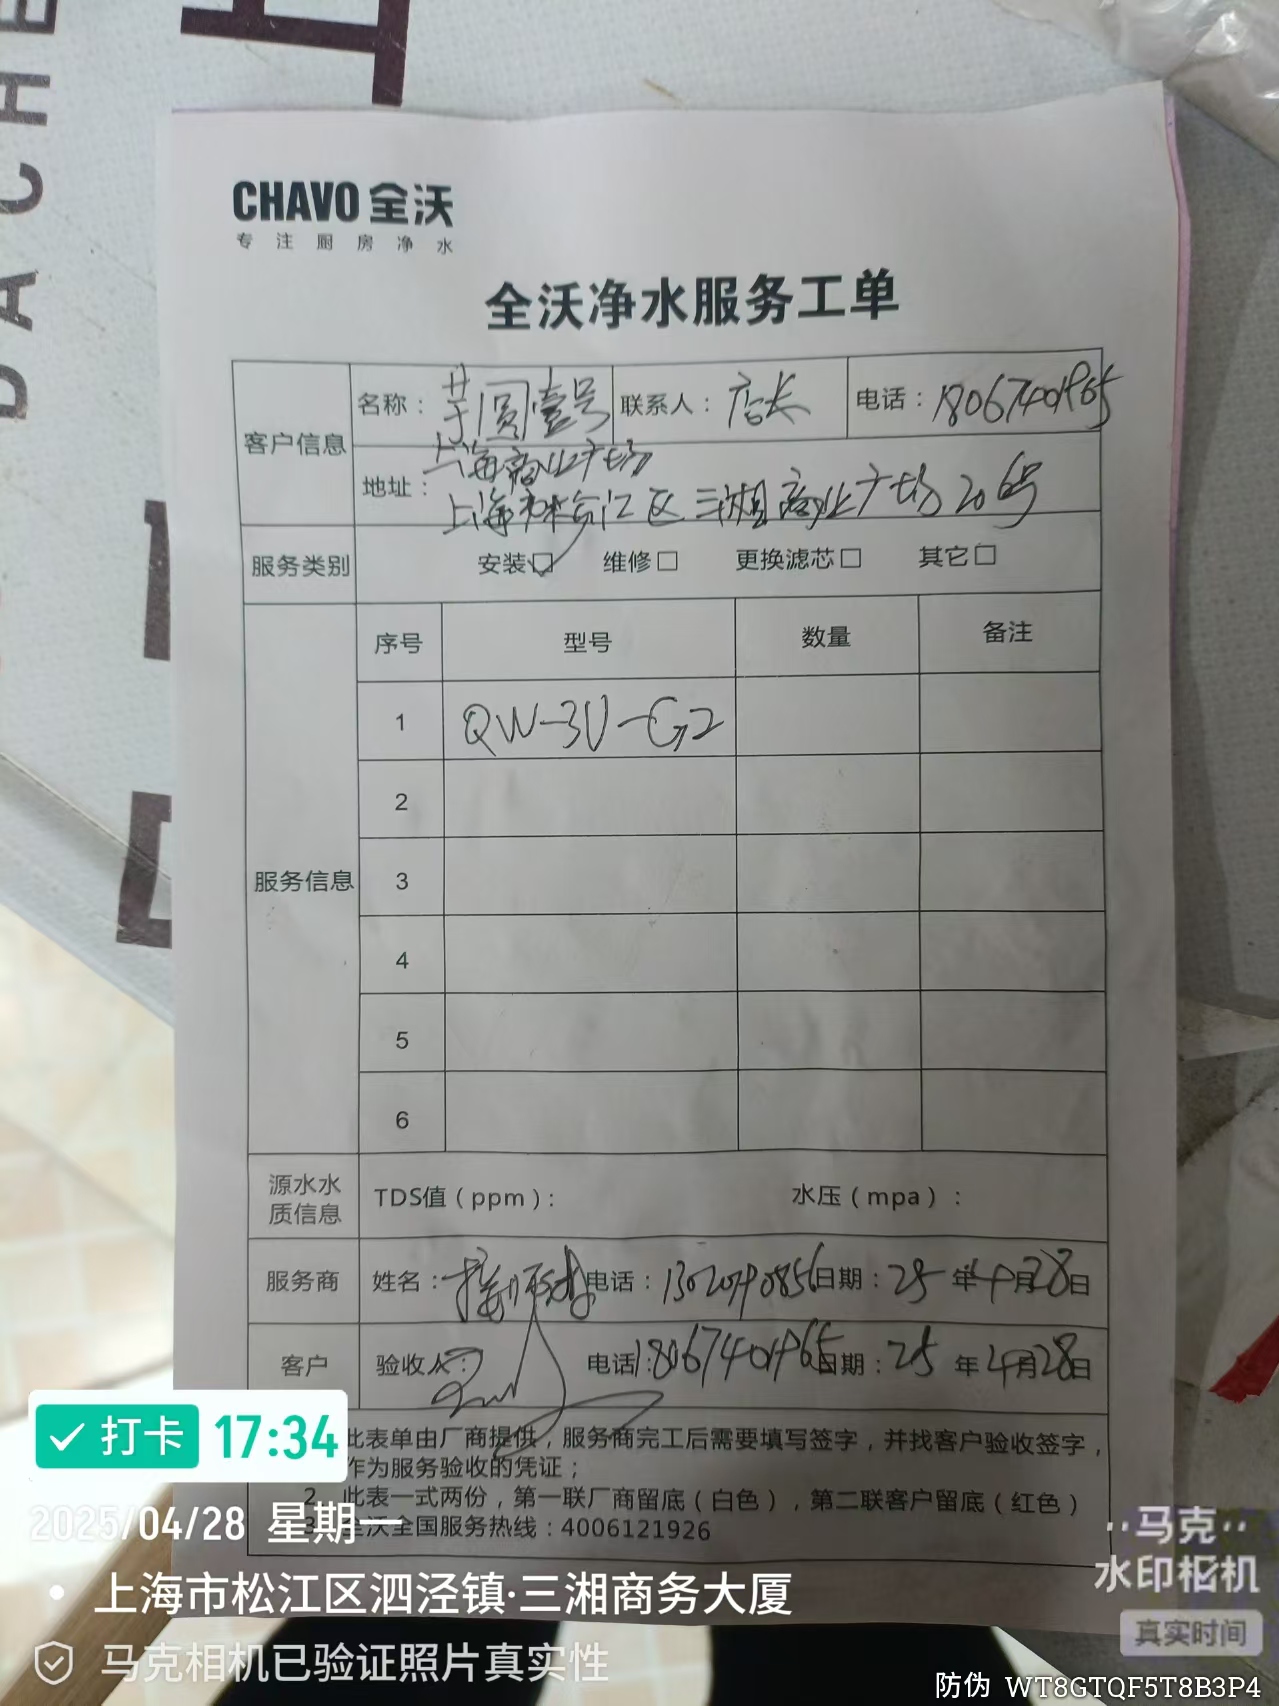 DACHE
CHAVO 全沃
专注厨房净水
全沃净水服务工单
客户信息
名称：芋圆壹号 联系人：店长 电话：18067401965
上海商业广场
地址：上海市松江区三湘商业广场206号
服务类别 安装☑ 维修□ 更换滤芯□ 其它□
服务信息
序号 型号 数量 备注
1 QW-3U-G2
2
3
4
5
6
源水水质信息 TDS值（ppm）： 水压（mpa）：
服务商 姓名： 电话：13020790856 日期：25年4月28日
客户 验收人： 电话：18067401965 日期：25年4月28日
此表单由厂商提供，服务商完工后需要填写签字，并找客户验收签字，
作为服务验收的凭证；
2、此表一式两份，第一联厂商留底（白色），第二联客户留底（红色）
3、全沃全国服务热线：4006121926
打卡 17:34
2025/04/28 星期一
上海市松江区泗泾镇·三湘商务大厦
马克相机已验证照片真实性
马克
水印相机
真实时间
防伪 WT8GTQF5T8B3P4